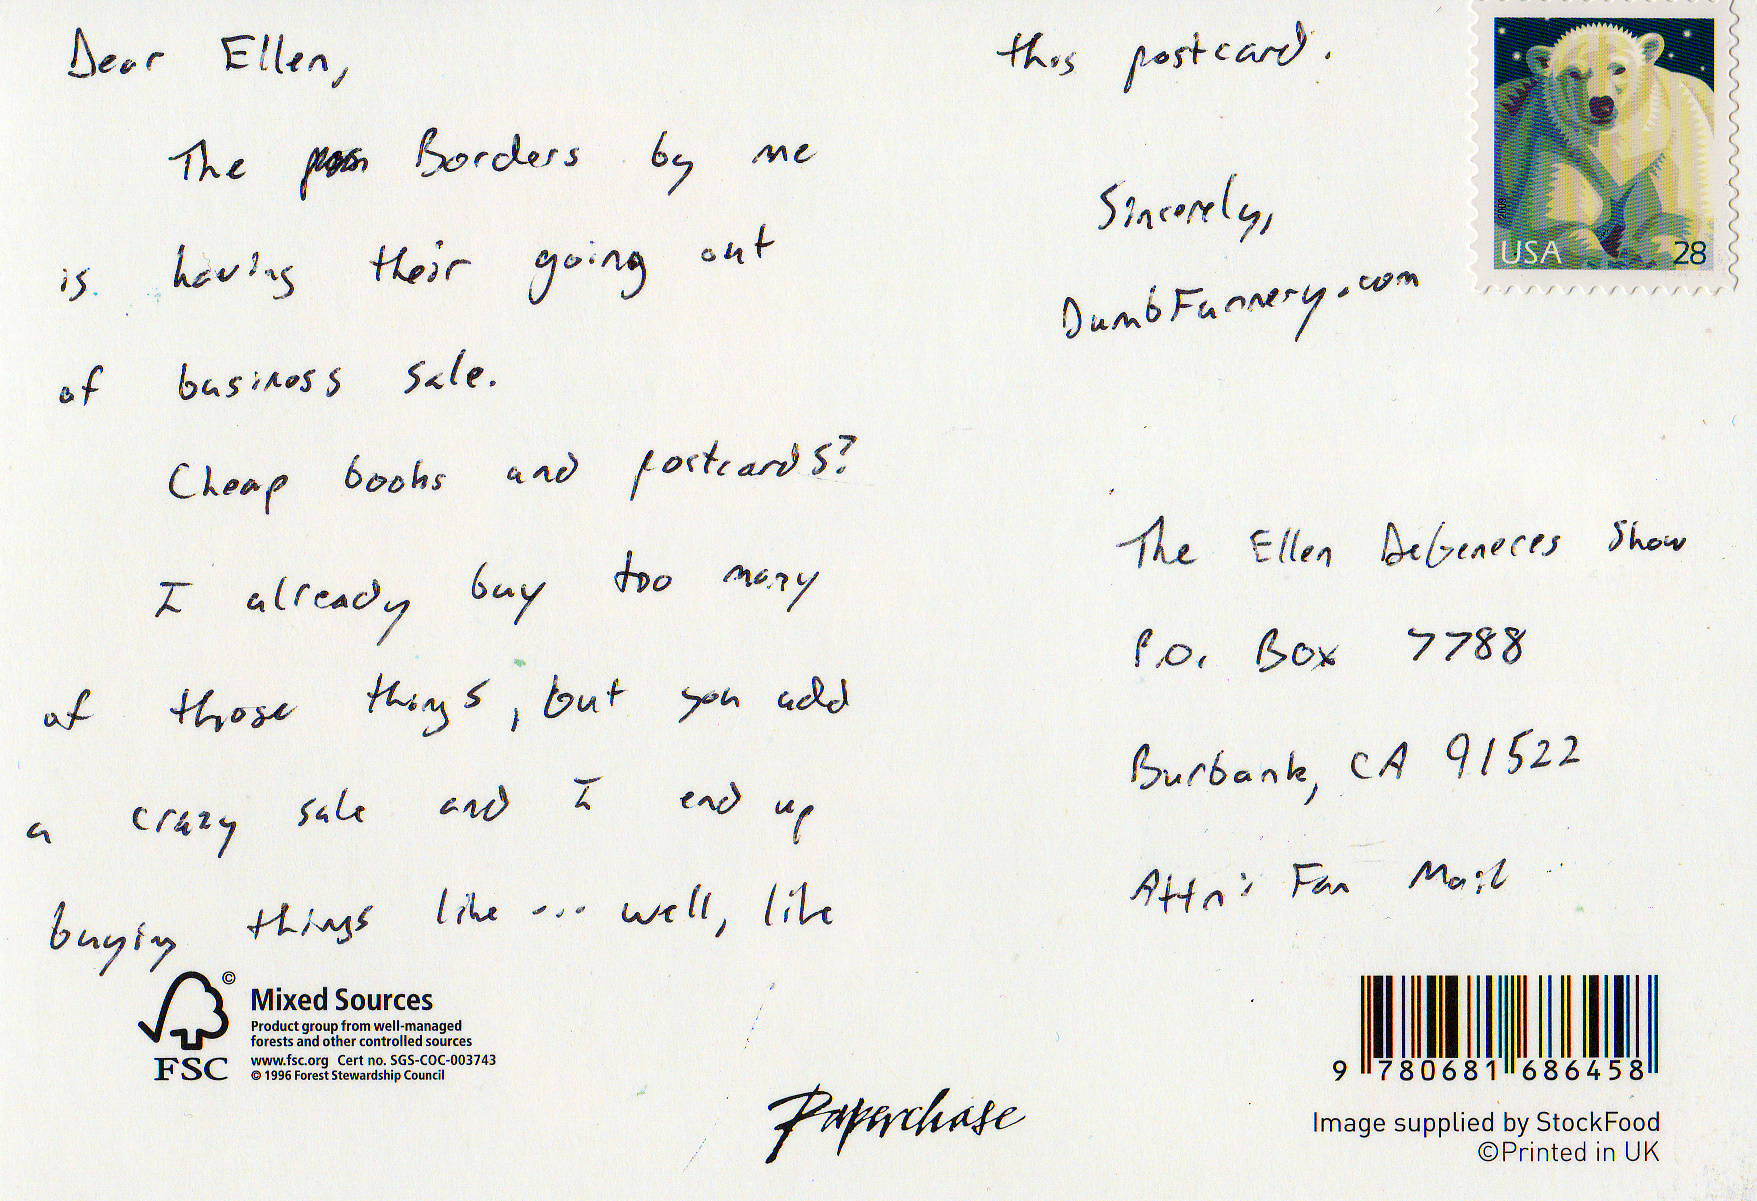 Dear Ellen,
The Borders by me
is having their going out
of business sale.
Cheap books and postcards?
I already buy too many
of those things, but you add
a crazy sale and I end up
buying things like ... well, like
this postcard.
Sincerely,
DumbFunnery.com
USA 28
2009
The Ellen DeGeneres Show
P.O. Box 7788
Burbank, CA 91522
Attn: Fan Mail
©
FSC
Mixed Sources
Product group from well-managed
forests and other controlled sources
www.fsc.org Cert no. SGS-COC-003743
© 1996 Forest Stewardship Council
Paperchase
9 780681 686458
Image supplied by StockFood
©Printed in UK